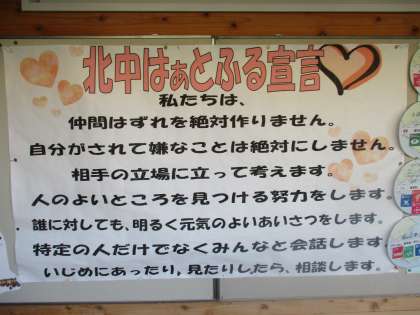 北中はぁとふる宣言
私たちは、
仲間はずれを絶対作りません。
自分がされて嫌なことは絶対にしません。
相手の立場に立って考えます。
人のよいところを見つける努力をします。
誰に対しても、明るく元気のよいあいさつをします。
特定の人だけでなくみんなと会話します
いじめにあったり,見たりしたら、相談します。